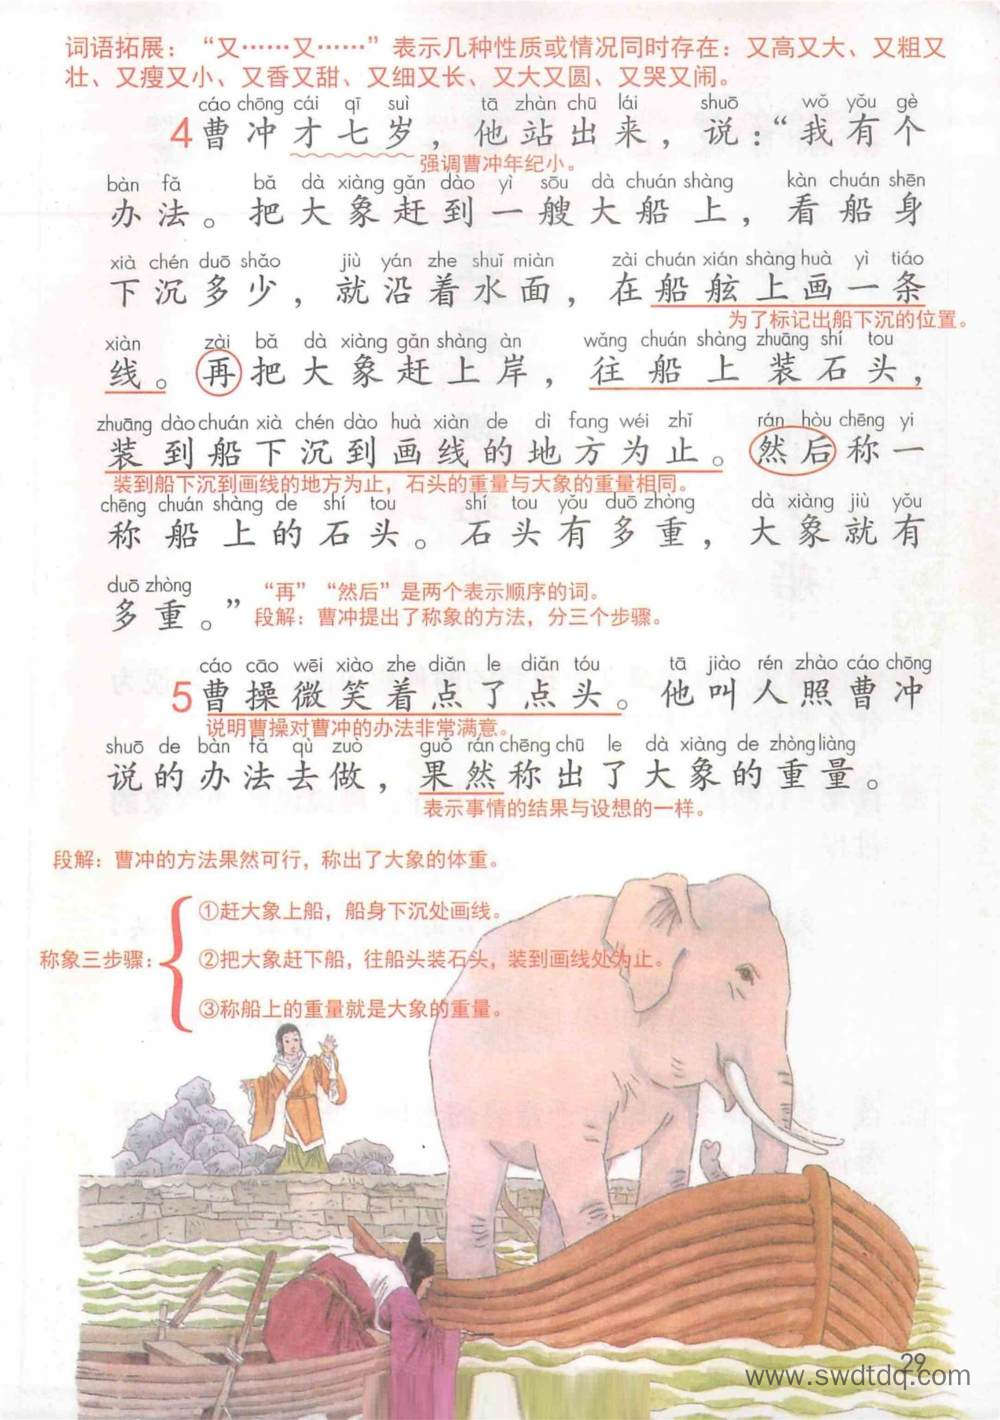 词语拓展：“又……又……”表示几种性质或情况同时存在：又高又大、又粗又
壮、又瘦又小、又香又甜、又细又长、又大又圆、又哭又闹。
cáo chōng cái qī suì tā zhàn chū lái shuō wǒ yǒu gè
4 曹冲才七岁，他站出来，说：“我有个
强调曹冲年纪小。
bàn fǎ bǎ dà xiàng gǎn dào yì sōu dà chuán shàng kàn chuán shēn
办法。把大象赶到一艘大船上，看船身
xià chén duō shǎo jiù yán zhe shuǐ miàn zài chuán xián shàng huà yì tiáo
下沉多少，就沿着水面，在船舷上画一条
为了标记出船下沉的位置。
xiàn zài bǎ dà xiàng gǎn shàng àn wǎng chuán shàng zhuāng shí tou
线。再把大象赶上岸，往船上装石头，
zhuāng dào chuán xià chén dào huà xiàn de dì fang wéi zhǐ rán hòu chēng yi
装到船下沉到画线的地方为止。然后称一
装到船下沉到画线的地方为止，石头的重量与大象的重量相同。
chēng chuán shàng de shí tou shí tou yǒu duō zhòng dà xiàng jiù yǒu
称船上的石头。石头有多重，大象就有
duō zhòng
多重。”
“再”“然后”是两个表示顺序的词。
段解：曹冲提出了称象的方法，分三个步骤。
cáo cāo wēi xiào zhe diǎn le diǎn tóu tā jiào rén zhào cáo chōng
5 曹操微笑着点了点头。他叫人照曹冲
说明曹操对曹冲的办法非常满意。
shuō de bàn fǎ qù zuò guǒ rán chēng chū le dà xiàng de zhòng liàng
说的办法去做，果然称出了大象的重量。
表示事情的结果与设想的一样。
段解：曹冲的方法果然可行，称出了大象的体重。
称象三步骤：
①赶大象上船，船身下沉处画线。
②把大象赶下船，往船头装石头，装到画线处为止。
③称船上的重量就是大象的重量。
29
www.swdtdq.com